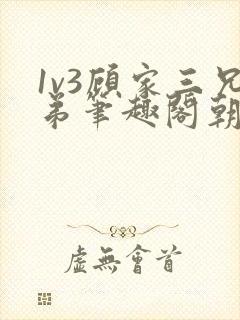 1v3顾家三兄
弟笔趣阁朝
虚無會首